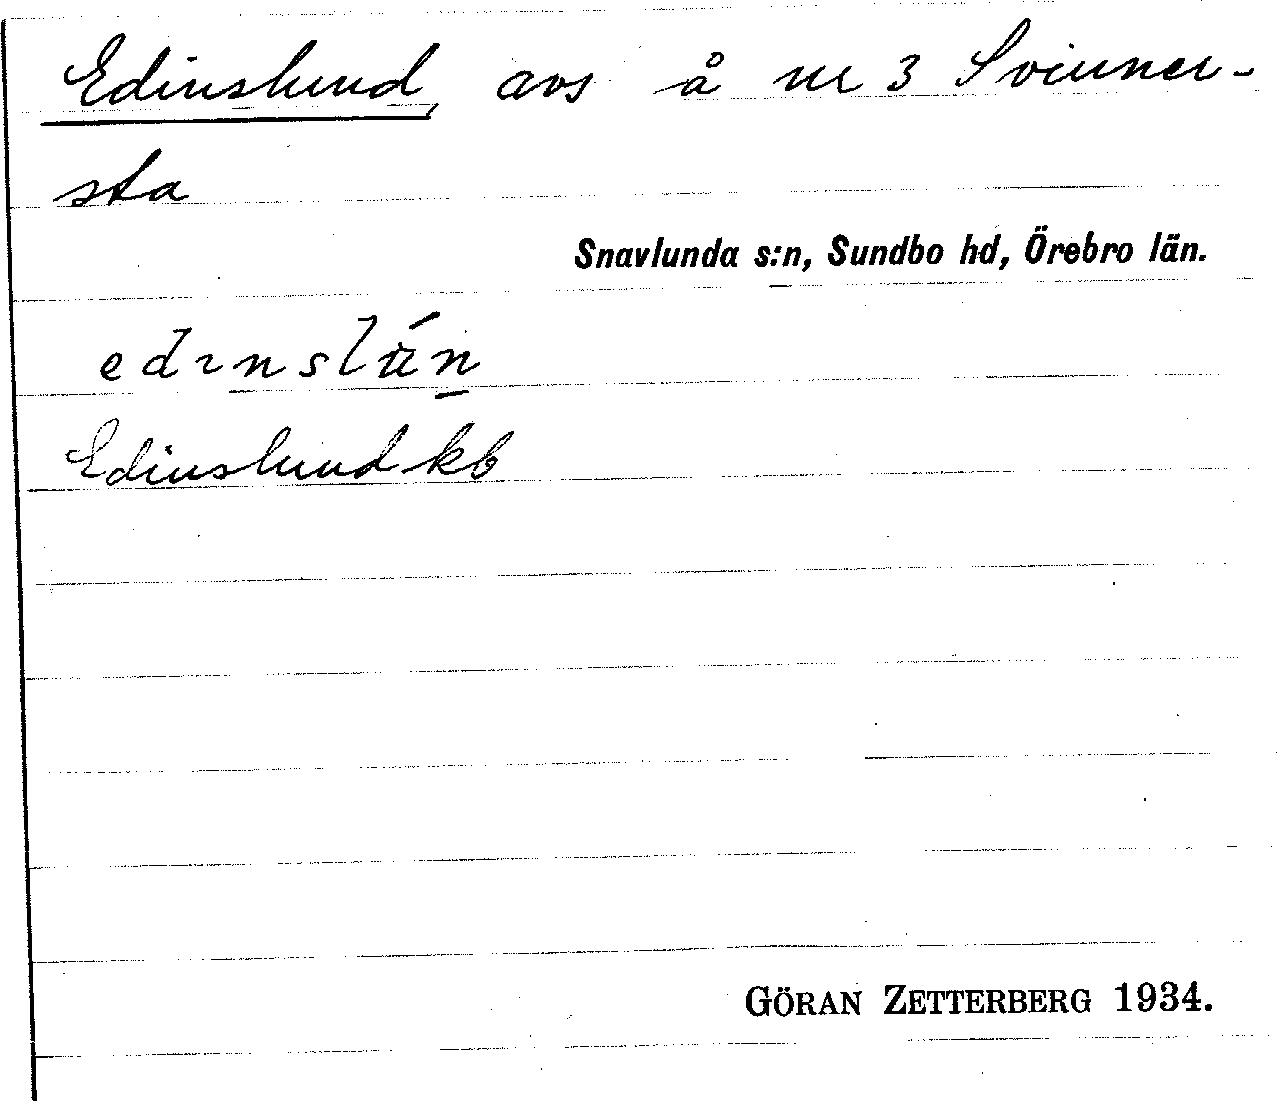 Edinslund, avs å nr 3 Svinner-
sta
Snavlunda s:n, Sundbo hd, Örebro län.
Edinslund kb
GÖRAN ZETTERBERG 1934.